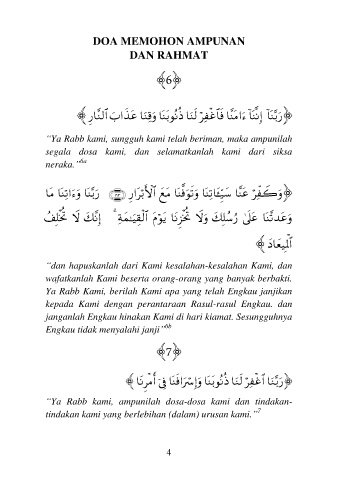 DOA MEMOHON AMPUNAN
DAN RAHMAT
﴾6﴿
﴿رَبَّنَآ إِنَّنَآ ءَامَنَّا فَٱغْفِرْ لَنَا ذُنُوبَنَا وَقِنَا عَذَابَ ٱلنَّارِ ﴾
“Ya Rabb kami, sungguh kami telah beriman, maka ampunilah
segala dosa kami, dan selamatkanlah kami dari siksa
neraka.”6a
﴿وَكَفِّرْ عَنَّا سَيِّـَٔاتِنَا وَتَوَفَّنَا مَعَ ٱلْأَبْرَارِ ۝ رَبَّنَا وَءَاتِنَا مَا
وَعَدتَّنَا عَلَىٰ رُسُلِكَ وَلَا تُخْزِنَا يَوْمَ ٱلْقِيَـٰمَةِ ۗ إِنَّكَ لَا تُخْلِفُ
ٱلْمِيعَادَ ﴾
“dan hapuskanlah dari Kami kesalahan-kesalahan Kami, dan
wafatkanlah Kami beserta orang-orang yang banyak berbakti.
Ya Rabb Kami, berilah Kami apa yang telah Engkau janjikan
kepada Kami dengan perantaraan Rasul-rasul Engkau. dan
janganlah Engkau hinakan Kami di hari kiamat. Sesungguhnya
Engkau tidak menyalahi janji”6b
﴾7﴿
﴿رَبَّنَا ٱغْفِرْ لَنَا ذُنُوبَنَا وَإِسْرَافَنَا فِىٓ أَمْرِنَا ﴾
“Ya Rabb kami, ampunilah dosa-dosa kami dan tindakan-
tindakan kami yang berlebihan (dalam) urusan kami.”7
4